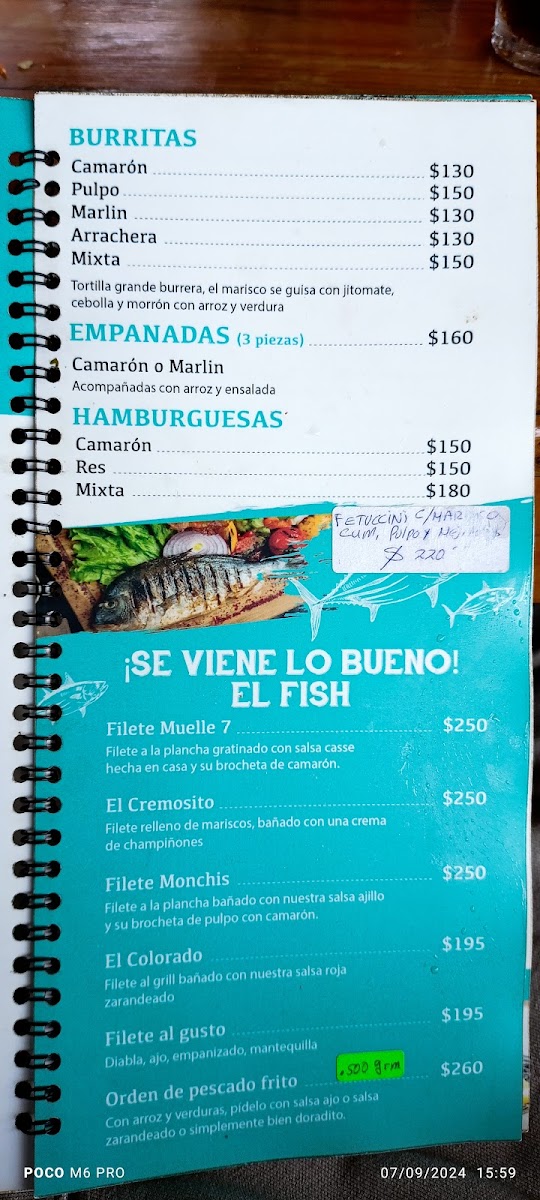 BURRITAS
Camarón $130
Pulpo $150
Marlin $130
Arrachera $130
Mixta $150
Tortilla grande burrera, el marisco se guisa con jitomate,
cebolla y morrón con arroz y verdura
EMPANADAS (3 piezas) $160
Camarón o Marlin
Acompañadas con arroz y ensalada
HAMBURGUESAS
Camarón $150
Res $150
Mixta $180
FETUCCINI C/MARISCO
CAM, PulPO Y
$ 220
¡SE VIENE LO BUENO!
EL FISH
Filete Muelle 7 $250
Filete a la plancha gratinado con salsa casse
hecha en casa y su brocheta de camarón.
El Cremosito $250
Filete relleno de mariscos, bañado con una crema
de champiñones
Filete Monchis $250
Filete a la plancha bañado con nuestra salsa ajillo
y su brocheta de pulpo con camarón.
El Colorado $195
Filete al grill bañado con nuestra salsa roja
zarandeado
Filete al gusto $195
Diabla, ajo, empanizado, mantequilla
.500 grm
Orden de pescado frito $260
Con arroz y verduras, pídelo con salsa ajo o salsa
zarandeado o simplemente bien doradito.
POCO M6 PRO
07/09/2024 15:59